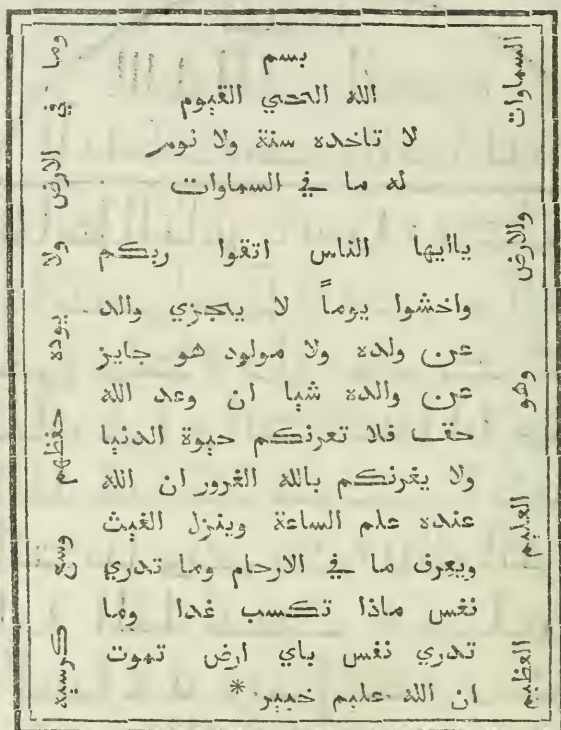 بسم
الله الحي القيوم
لا تاخده سنة ولا نوم
له ما في السماوات
ياايها الناس اتقوا ربكم
واخشوا يوماً لا يجزي والد
عن ولده ولا مولود هو جايز
عن والده شيا ان وعد الله
حقب فلا تعرنكم حيوة الدنيا
ولا يغرنكم بالله الغرور ان الله
عنده علم الساعة وينزل الغيث
ويعرف ما في الارحام وما تدري
نفس ماذا تكسب غدا وما
تدري نفس باي ارض تموت
ان الله عليم خبير *
السماوات والارض وهو العليم العظيم
وما في الارض ولا يوده حفظهم وسع كرسيه